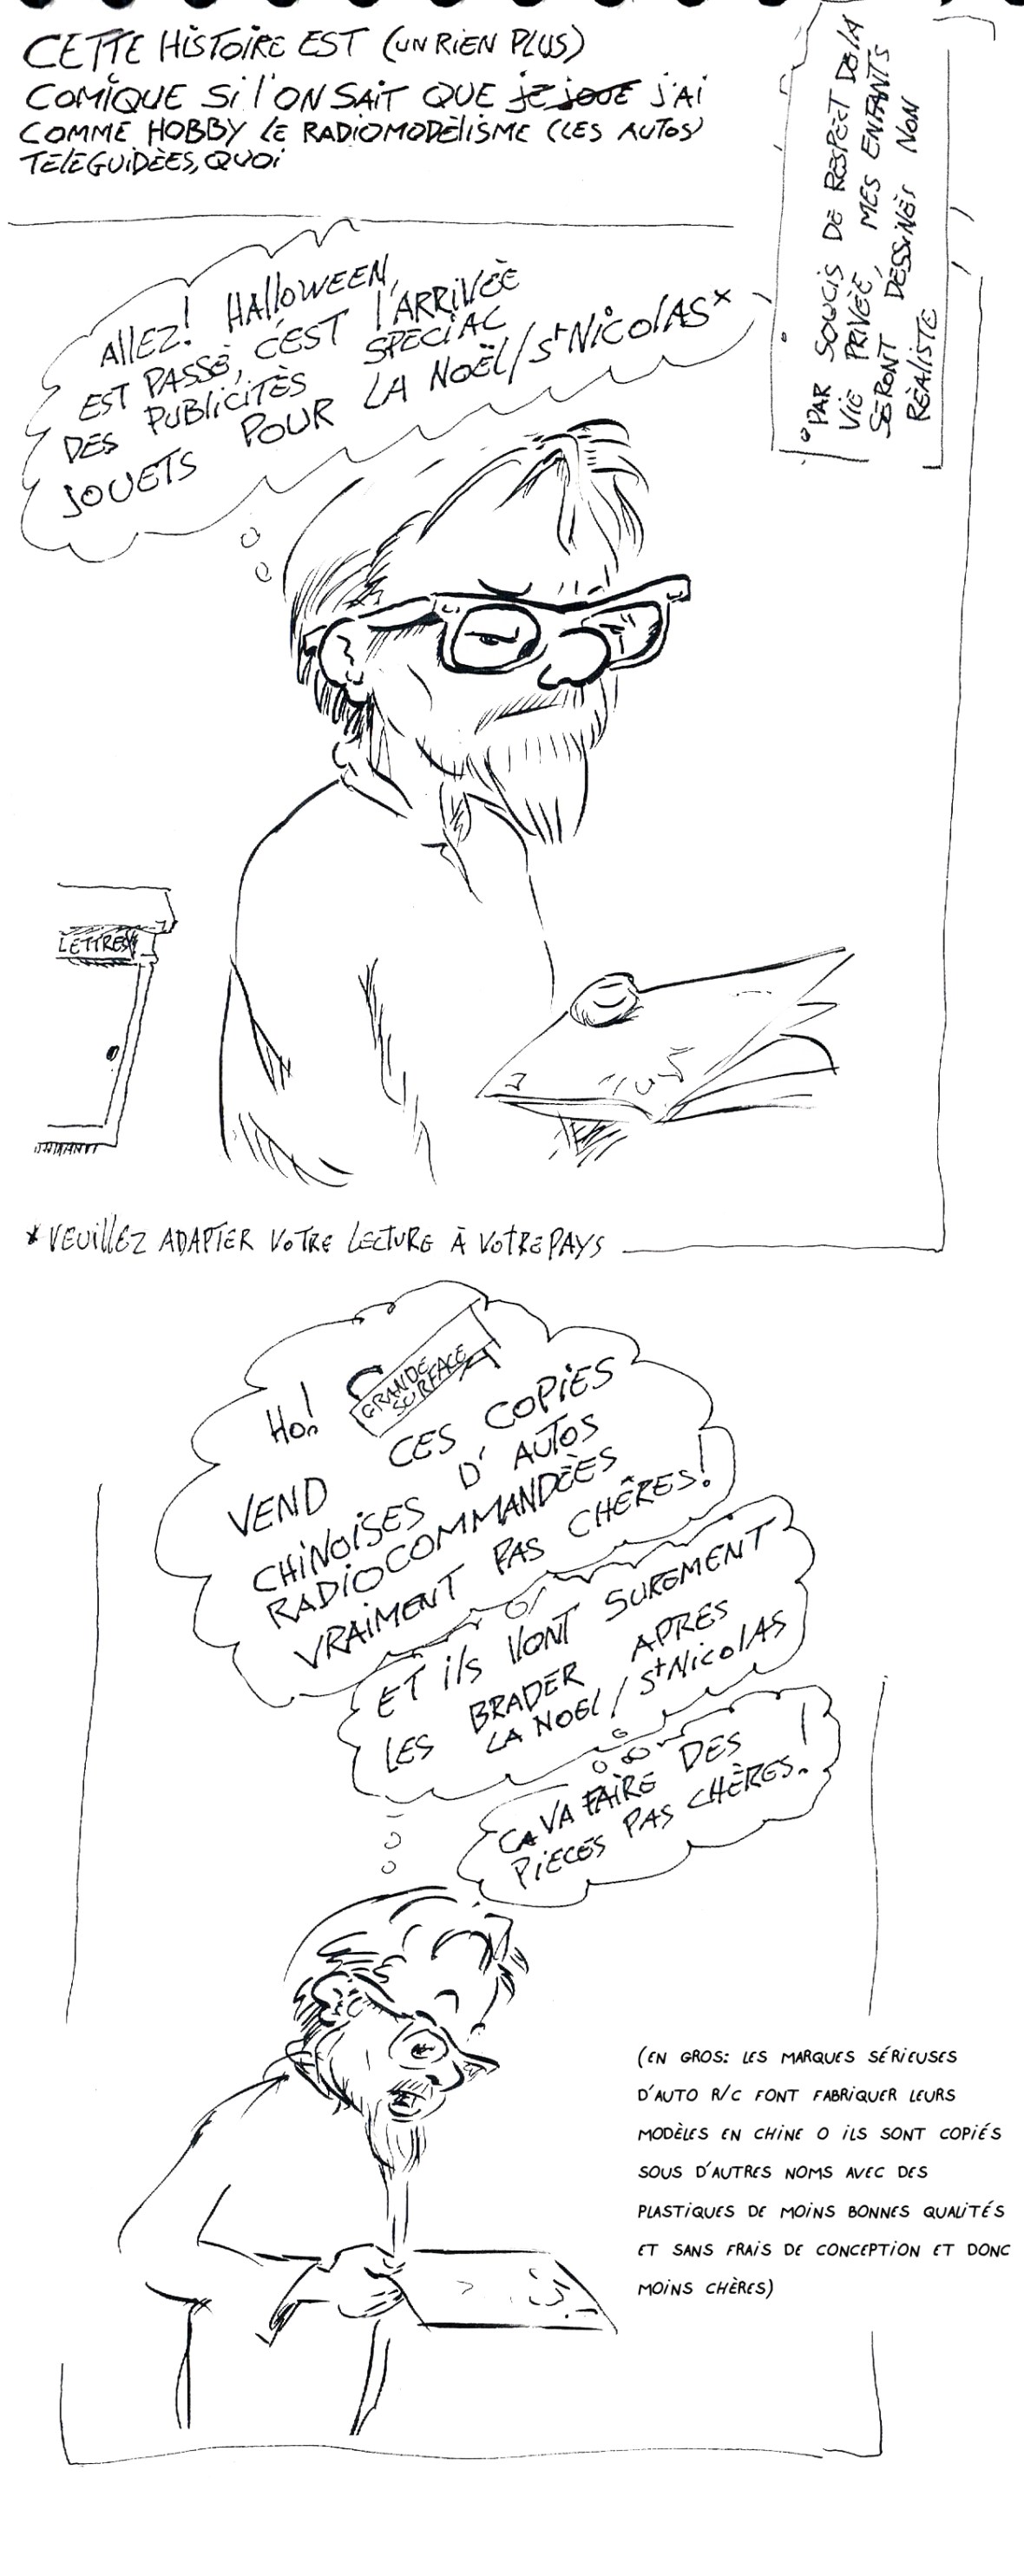 CETTE HISTOIRE EST (UN RIEN PLUS)
COMIQUE SI L'ON SAIT QUE JE JOUE J'AI
COMME HOBBY LE RADIOMODÈLISME (LES AUTOS
TELEGUIDÈES, QUOI
PAR SOUCIS DE RESPECT DE LA
VIE PRIVÈE, MES ENFANTS
SERONT DESSINÈS NON
RÈALISTE
ALLEZ! HALLOWEEN,
EST PASSÈ, C'EST L'ARRIVÈE
DES PUBLICITÈS SPECIAL
JOUETS POUR LA NOËL/ST NICOLAS*
LETTRES
*VEUILLEZ ADAPTER VOTRE LECTURE À VOTRE PAYS
HO! GRANDE
SURFACE
VEND CES COPIES
CHINOISES D'AUTOS
RADIOCOMMANDÈES
VRAIMENT PAS CHÊRES!
ET ILS VONT SUREMENT
LES BRADER APRES
LA NOEL/ST NICOLAS
CA VA FAIRE DES
PIECES PAS CHÈRES!
(EN GROS: LES MARQUES SÉRIEUSES
D'AUTO R/C FONT FABRIQUER LEURS
MODÈLES EN CHINE O ILS SONT COPIÉS
SOUS D'AUTRES NOMS AVEC DES
PLASTIQUES DE MOINS BONNES QUALITÉS
ET SANS FRAIS DE CONCEPTION ET DONC
MOINS CHÈRES)